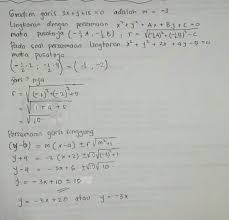 Gradien garis 3x+y+15=0 adalah m = -3
Lingkaran dengan persamaan x²+y²+Ax+By+C=0
maka pusatnya (-½A, -½B), r = √(-½A)²+(-½B)²-C
Pada soal persamaan lingkaran x²+y²+2x+4y-5=0
maka pusatnya
(-½.2, -½.4) = (-1, -2)
Jari² nya
r = √(-1)²+(-2)²+5
= √1+4+5
= √10
Persamaan garis singgung
(y-b) = m(x-a) ± r√m²+1
= -3(x+2) ± √10 √(-3)²+1
= -3x+6 ± √10 √10
y = -3x + 10 ± 10
y = -3x+20 atau y = -3x